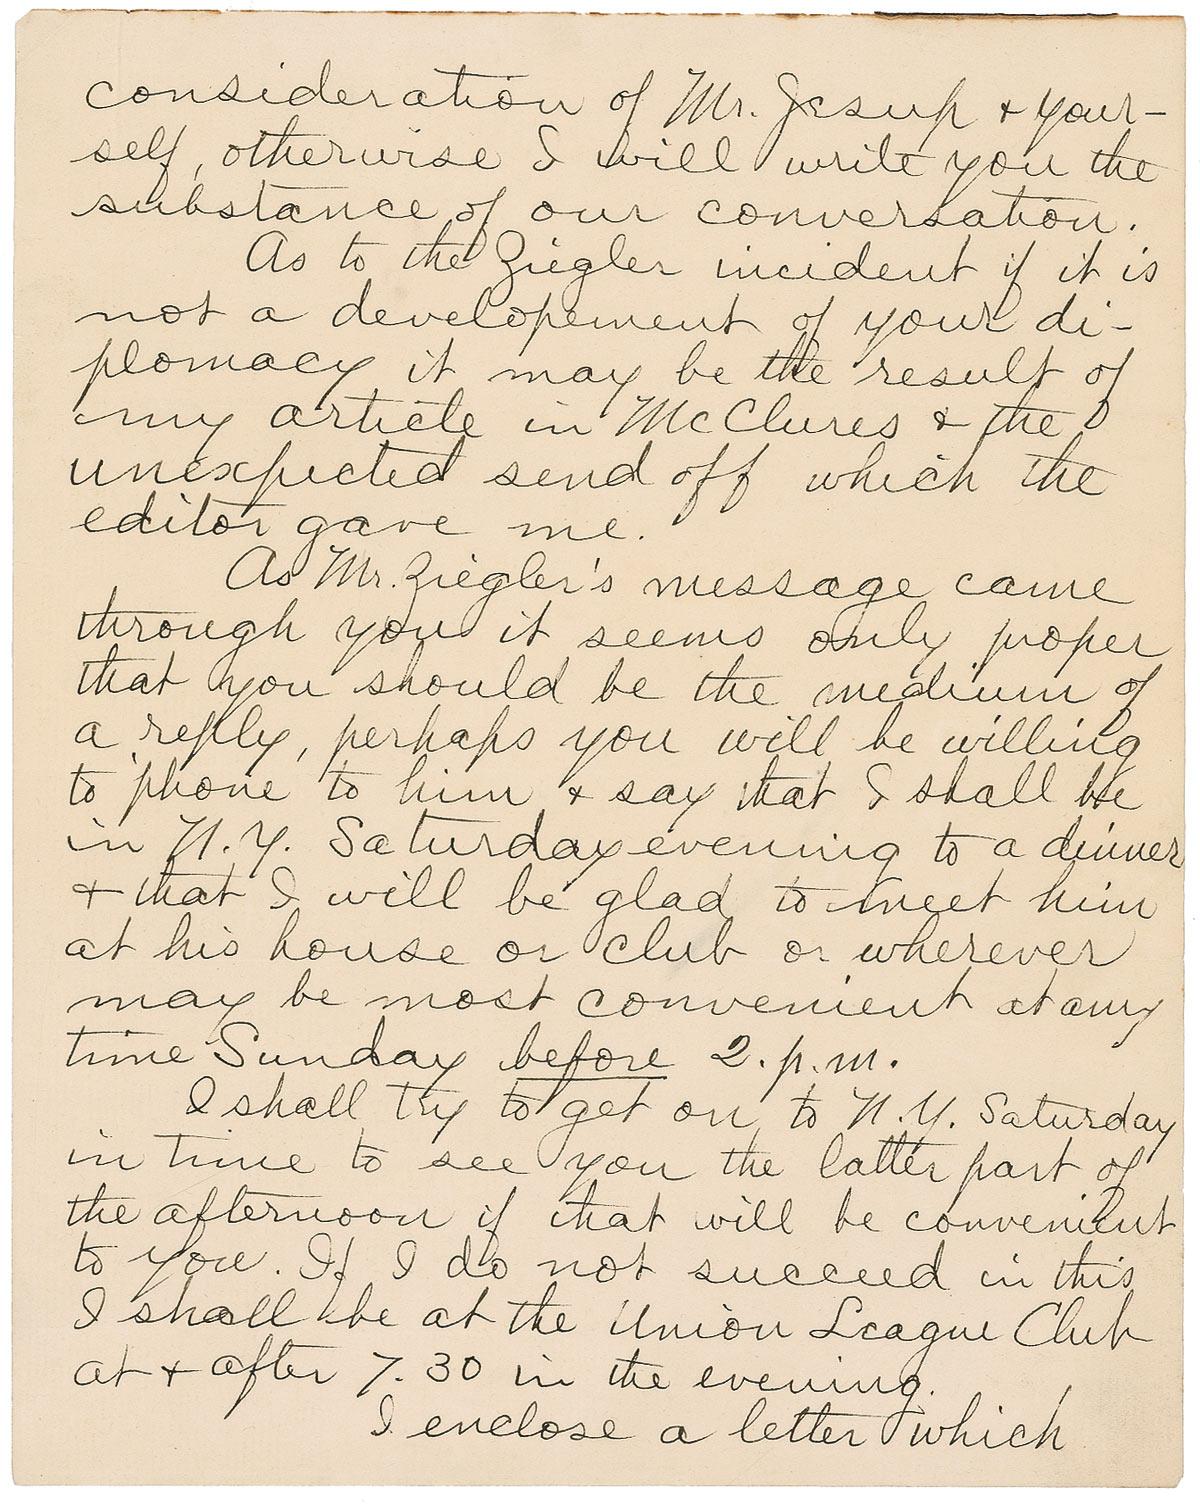 consideration of Mr. Jesup + your-
self, otherwise I will write you the
substance of our conversation.
As to the Ziegler incident if it is
not a developement of your di-
plomacy it may be the result of
my article in McClures + the
unexpected send off which the
editor gave me.
As Mr. Ziegler's message came
through you it seems only proper
that you should be the medium of
a reply, perhaps you will be willing
to 'phone to him + say that I shall be
in N.Y. Saturday evening to a dinner
+ that I will be glad to meet him
at his house or club or wherever
may be most convenient at any
time Sunday before 2. p.m.
I shall try to get on to N.Y. Saturday
in time to see you the latter part of
the afternoon if that will be convenient
to you. If I do not succeed in this
I shall be at the Union League Club
at + after 7.30 in the evening.
I enclose a letter which